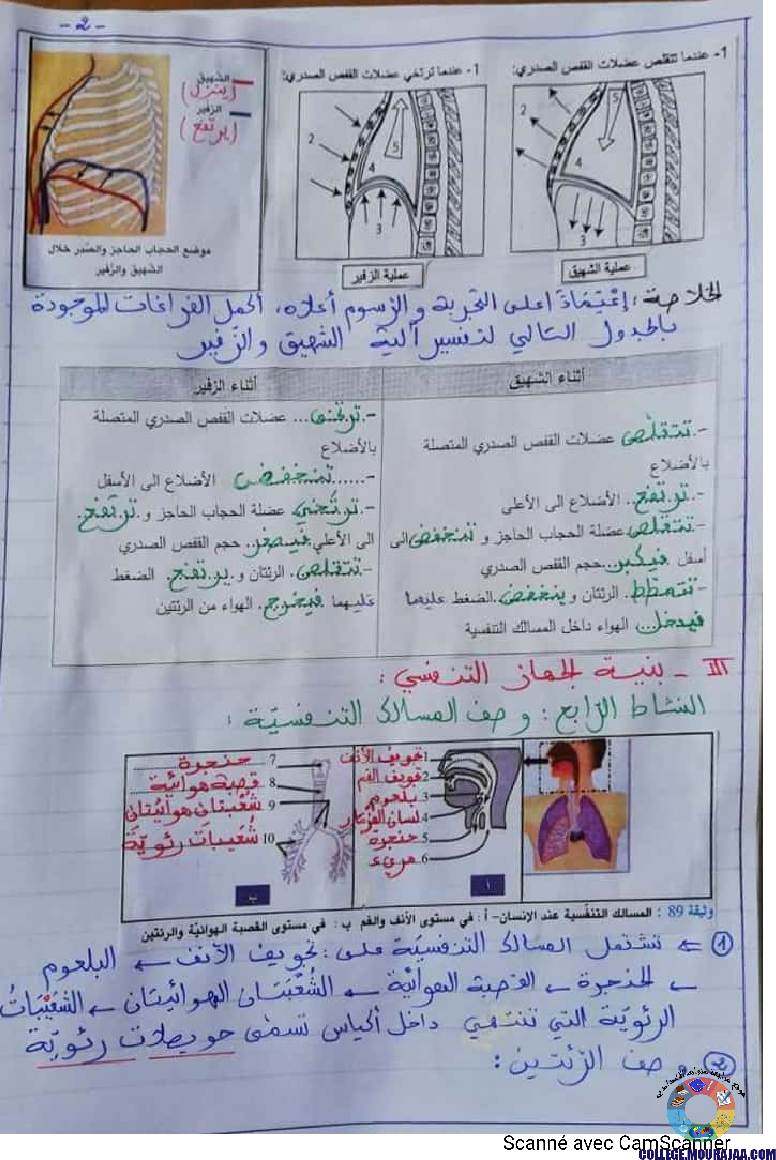 - 2 -
1- عندما تتقلص عضلات القفص الصدري:
2
5
4
3
عملية الشهيق
1- عندما ترتخي عضلات القفص الصدري:
2
5
4
3
عملية الزفير
الشهيق
(ينزل)
الزفير
(يرتفع)
موضع الحجاب الحاجز والصدر خلال
الشهيق والزفير
الخلاصة: إعتمادا على التجربة والرسوم أعلاه، أكمل الفراغات الموجودة
بالجدول التالي لتفسير آلية الشهيق والزفير
أثناء الشهيق
-تتقلص عضلات القفص الصدري المتصلة
بالأضلاع
-ترتفع. الأضلاع الى الأعلى
-تتقلص عضلة الحجاب الحاجز و تنخفض الى
أسفل فيكبر.. حجم القفص الصدري
-تتمطط. الرئتان و ينخفض. الضغط عليهما
فيدخل... الهواء داخل المسالك التنفسية
أثناء الزفير
-.ترتخي... عضلات القفص الصدري المتصلة
بالأضلاع
-......تنخفض الأضلاع الى الأسفل
-ترتخي عضلة الحجاب الحاجز و ترتفع.
الى الأعلى فيصغر.. حجم القفص الصدري
-تتقلص. الرئتان و.يرتفع. الضغط
عليهما فيخرج. الهواء من الرئتين
III - بنية الجهاز التنفسي:
النشاط الرابع: وصف المسالك التنفسيّة:
1 تجويف الأنف
2 تجويف الفم
3 بلعوم
4 لسان المزمار
5 حنجرة
6 مريء
أ
7 حنجرة
8 قصبة هوائية
9 شعبتان هوائيتان
10 شعيبات رئويّة
ب
وثيقة 89 : المسالك التنفسية عند الإنسان- أ : في مستوى الأنف والفم ب : في مستوى القصبة الهوائية والرئتين
① ← تشتمل المسالك التنفسيّة على: تجويف الأنف ← البلعوم
← الحنجرة ← القصبة الهوائية ← الشُعْبَتَان الهوائيتان ← الشُعَيْبَاتُ
الرئويّة التي تنتهي داخل أكياس تسمى حويصلات رئويّة
② وصف الرئتين:
Scanné avec CamScanner
COLLEGE.MOURAJAA.COM